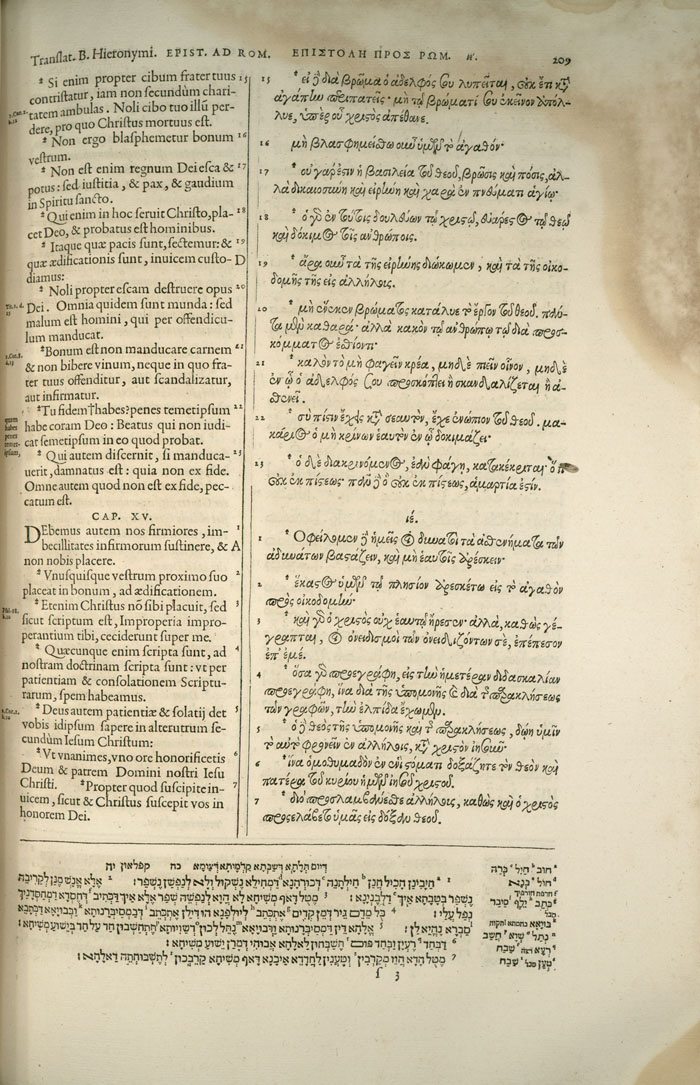 Translat. B. Hieronymi. EPIST. AD ROM.
* Si enim propter cibum frater tuus 15
contristatur, iam non secundùm chari-
tatem ambulas. Noli cibo tuo illū per-
dere, pro quo Christus mortuus est.
* Non ergo blasphemetur bonum 16
vestrum.
* Non est enim regnum Dei esca & 17
potus: sed iustitia, & pax, & gaudium
in Spiritu sancto.
* Qui enim in hoc seruit Christo, pla- 18
cet Deo, & probatus est hominibus.
* Itaque quæ pacis sunt, sectemur: & 19
quæ ædificationis sunt, inuicem custo- D
diamus:
* Noli propter escam destruere opus 20
Dei. Omnia quidem sunt munda: sed
malum est homini, qui per offendicu-
lum manducat.
* Bonum est non manducare carnem 21
& non bibere vinum, neque in quo fra-
ter tuus offenditur, aut scandalizatur,
aut infirmatur.
* Tu fidem † habes? penes temetipsum 22
habe coram Deo: Beatus qui non iudi-
cat semetipsum in eo quod probat.
* Qui autem discernit, si manduca- 23
uerit, damnatus est: quia non ex fide.
Omne autem quod non est ex fide, pec-
catum est.
CAP. XV.
DEbemus autem nos firmiores, im- 1
becillitates infirmorum sustinere, & A
non nobis placere.
* Vnusquisque vestrum proximo suo 2
placeat in bonum, ad ædificationem.
* Etenim Christus nō sibi placuit, sed 3
sicut scriptum est, Improperia impro-
perantium tibi, ceciderunt super me.
* Quæcunque enim scripta sunt, ad 4
nostram doctrinam scripta sunt: vt per
patientiam & consolationem Scriptu-
rarum, spem habeamus.
* Deus autem patientiæ & solatij det 5
vobis idipsum sapere in alterutrum se-
cundùm Iesum Christum:
* Vt vnanimes, vno ore honorificetis 6
Deum & patrem Domini nostri Iesu
Christi. * Propter quod suscipite in- 7
uicem, sicut & Christus suscepit vos in
honorem Dei.
ΕΠΙΣΤΟΛΗ ΠΡΟΣ ΡΩΜ. 209
15 * εἰ γὰρ διὰ βρῶμα ὁ ἀδελφός σου λυπεῖται, οὐκ ἔτι κατὰ
ἀγάπην περιπατεῖς· μὴ τῷ βρώματί σου ἐκεῖνον ἀπόλ-
λυε, ὑπὲρ οὗ χριστὸς ἀπέθανε.
16 μὴ βλασφημείσθω οὖν ὑμῶν τὸ ἀγαθόν·
17 * οὐ γάρ ἐστιν ἡ βασιλεία τοῦ θεοῦ, βρῶσις καὶ πόσις, ἀλ-
λὰ δικαιοσύνη καὶ εἰρήνη καὶ χαρὰ ἐν πνεύματι ἁγίῳ·
18 * ὁ γὰρ ἐν τούτοις δουλεύων τῷ χριστῷ, εὐάρεστος τῷ θεῷ
καὶ δόκιμος τοῖς ἀνθρώποις.
19 * ἄρα οὖν τὰ τῆς εἰρήνης διώκωμεν, καὶ τὰ τῆς οἰκο-
δομῆς τῆς εἰς ἀλλήλοις.
20 * μὴ ἕνεκεν βρώματος κατάλυε τὸ ἔργον τοῦ θεοῦ. πάν-
τα μὲν καθαρά· ἀλλὰ κακὸν τῷ ἀνθρώπῳ τῷ διὰ προσ-
κόμματος ἐσθίοντι·
21 * καλὸν τὸ μὴ φαγεῖν κρέα, μηδὲ πιεῖν οἶνον, μηδὲ
ἐν ᾧ ὁ ἀδελφός σου προσκόπτει ἢ σκανδαλίζεται ἢ ἀ-
σθενεῖ.
22 * σὺ πίστιν ἔχεις κατὰ σεαυτὸν, ἔχε ἐνώπιον τοῦ θεοῦ. μα-
κάριος ὁ μὴ κρίνων ἑαυτὸν ἐν ᾧ δοκιμάζει·
23 * ὁ δὲ διακρινόμενος, ἐὰν φάγῃ, κατακέκριται· ὅτι
οὐκ ἐκ πίστεως· πᾶν δὲ ὃ οὐκ ἐκ πίστεως, ἁμαρτία ἐστίν.
ιέ.
1 * Οφείλομεν δὲ ἡμεῖς οἱ δυνατοὶ τὰ ἀσθενήματα τῶν
ἀδυνάτων βαστάζειν, καὶ μὴ ἑαυτοῖς ἀρέσκειν·
2 * ἕκαστος ὑμῶν τῷ πλησίον ἀρεσκέτω εἰς τὸ ἀγαθὸν
πρὸς οἰκοδομήν·
3 * καὶ γὰρ ὁ χριστὸς οὐχ ἑαυτῷ ἤρεσεν· ἀλλὰ, καθὼς γέ-
γραπται, οἱ ὀνειδισμοὶ τῶν ὀνειδιζόντων σὲ, ἐπέπεσον
ἐπ' ἐμέ.
4 * ὅσα γὰρ προεγράφη, εἰς τὴν ἡμετέραν διδασκαλίαν
προεγράφη, ἵνα διὰ τῆς ὑπομονῆς καὶ διὰ τῆς παρακλήσεως
τῶν γραφῶν, τὴν ἐλπίδα ἔχωμεν.
5 * ὁ δὲ θεὸς τῆς ὑπομονῆς καὶ τῆς παρακλήσεως, δῴη ὑμῖν
τὸ αὐτὸ φρονεῖν ἐν ἀλλήλοις, κατὰ χριστὸν ἰησοῦν·
6 * ἵνα ὁμοθυμαδὸν ἐν ἑνὶ στόματι δοξάζητε τὸν θεὸν καὶ
πατέρα τοῦ κυρίου ἡμῶν ἰησοῦ χριστοῦ.
7 * διὸ προσλαμβάνεσθε ἀλλήλοις, καθὼς καὶ ὁ χριστὸς
προσελάβετο ὑμᾶς εἰς δόξαν θεοῦ.
קפלאון יה
1 חיבינן הכיל חנן חילתנא דכורהנא דמחילא נשקול ולא לנפשן נשפר: 2 אלא אנש מנן לקריבה
נשפר בטבתא איך דלבנינא: 3 מטל דאף משיחא לא הוא לנפשה שפר אלא איך דכתיב
נפל עלי: 4 כל מדם גיר דמן קדים אתכתב ליולפנא הו דילן אתכתב
סברא נהויא לן: 5 אלהא דין
6 דבחד רעין ובחד פום תשבחון לאלהא אבוהי דמרן ישוע משיחא:
7 מטל הנא הוו מקרבין וטעינין לחדדא איכנא דאף משיחא קרבכון לתשבוחתה דאלהא:
f 3